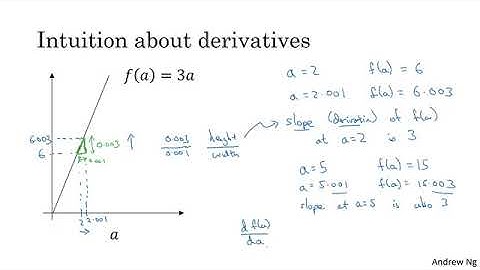 Intuition about derivatives
f(a) = 3a
6.003
6
0.003
0.001
2 2.001
a
0.003
0.001
height
width
a = 2 f(a) = 6
a = 2.001 f(a) = 6.003
slope (derivative) of f(a)
at a=2 is 3
a = 5 f(a) = 15
a = 5.001 f(a) = 15.003
slope at a=5 is also 3
d f(a)
da
Andrew Ng